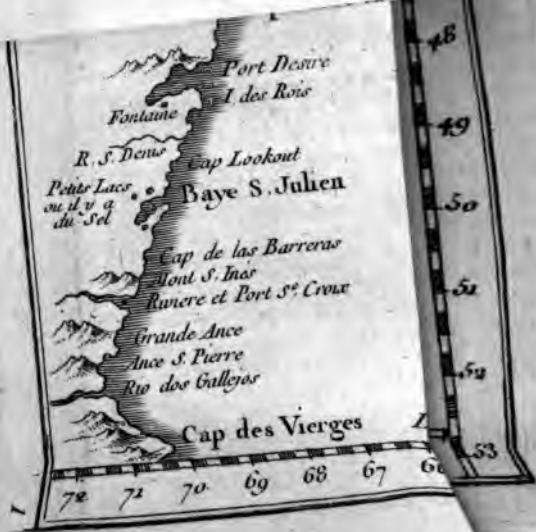 Port Desire
I des Rois
Fontaine
R. S. Denis
Cap Lookout
Petits Lacs
ou il y a
du Sel
Baye S. Julien
Cap de las Barreras
Mont S. Ines
Riviere et Port Sᵉ. Croix
Grande Ance
Ance S. Pierre
Rio dos Gallejos
Cap des Vierges
48
49
50
51
52
53
72 71 70 69 68 67